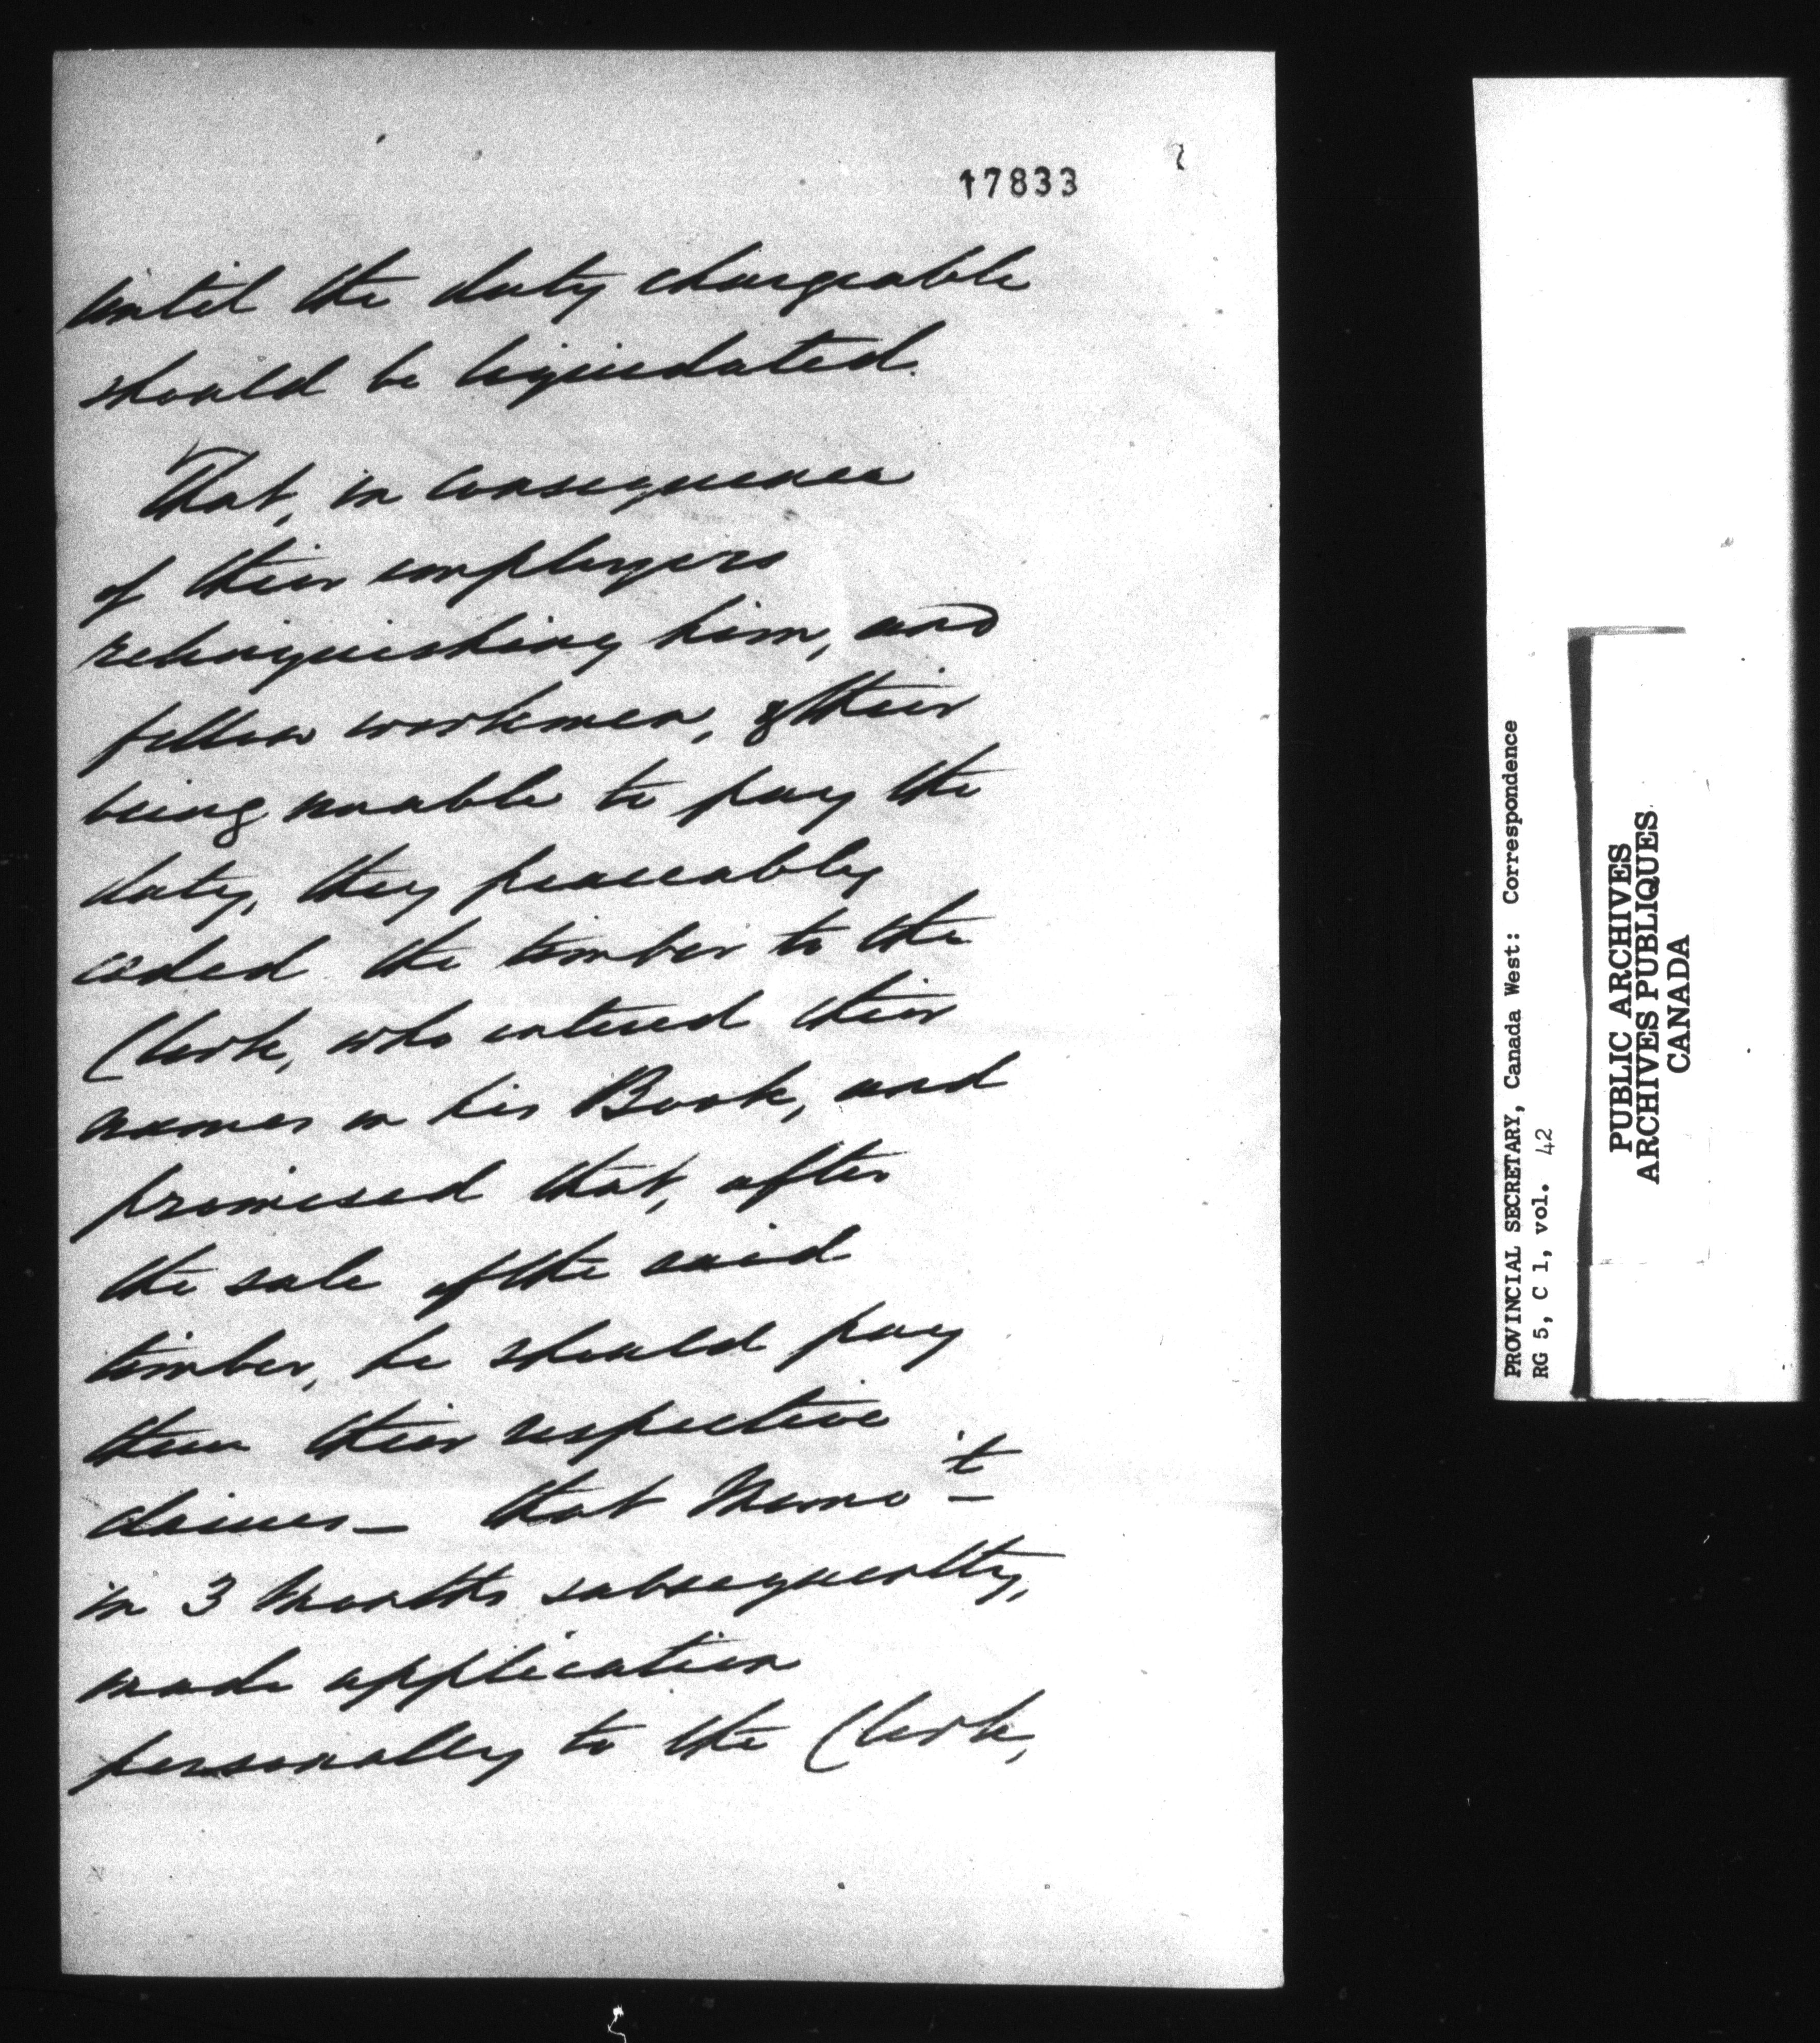 17833
until the duty chargeable
should be liquidated.
That, in consequence
of their employers
relinquishing him, and
fellow workmen, & their
being unable to pay the
duty, they peaceably
ceded the timber to the
Clerk, who entered their
names in his Book, and
promised that, after
the sale of the said
timber, he should pay
them their respective
claims — that Memo-t
in 3 Months subsequently,
made application
personally to the Clerk,
PROVINCIAL SECRETARY, Canada West: Correspondence
RG 5, C 1, vol. 42
PUBLIC ARCHIVES
ARCHIVES PUBLIQUES
CANADA